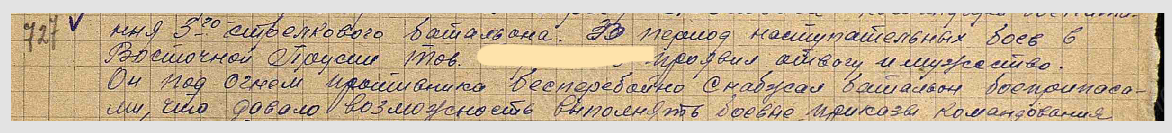 727 V ния 5го стрелкового батальона. За период наступательных боев в
Восточной Прусии тов. проявил отвагу и мужество.
Он под огнем противника бесперебойно снабжал батальон боеприпаса-
ми, что давало возможность выполнять боевые приказы командования